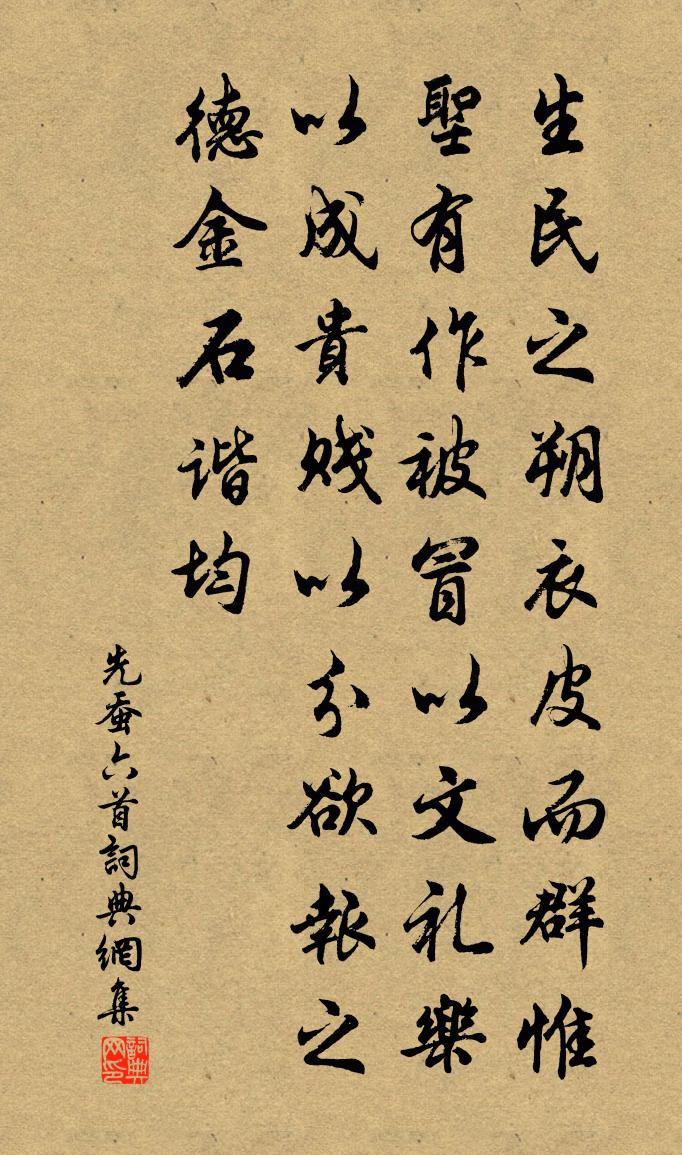 生民之朔衣皮而群惟
聖有作被冒以文礼樂
以成貴賤以分欲報之
德金石谐均
先蚕六首詞典網集
詞典网印